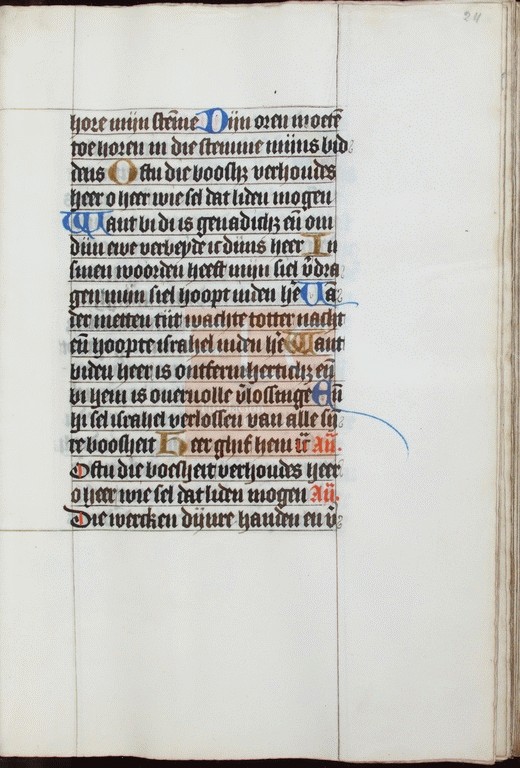 24
hore mijn stēme Dijn oren moetē
toe horen in die stemme mijns bid
dens Oftu die boosh3 verhoudes
heer o heer wie sel dat liden mogen
Want bi di is genadich3 eñ om
dijn ewe verbeyde ic dijns heer In
sinen woorden heeft mijn siel v̄dra
gen mijn siel hoopt inden hē Uā
der metten tijt wachte totter nacht
eñ hoopte israhel inden hē Want
biden heer is ontfermhertich3 eñ
bi hem is oueruolle v̄lossinge Eñ
hi sel israhel verlossen van alle sij
re boosheit Heer ghif hem Añ.
Oftu die boesheit verhoudes heer
o heer wie sel dat liden mogen Añ.
Die wercken dijnre handen en v̄